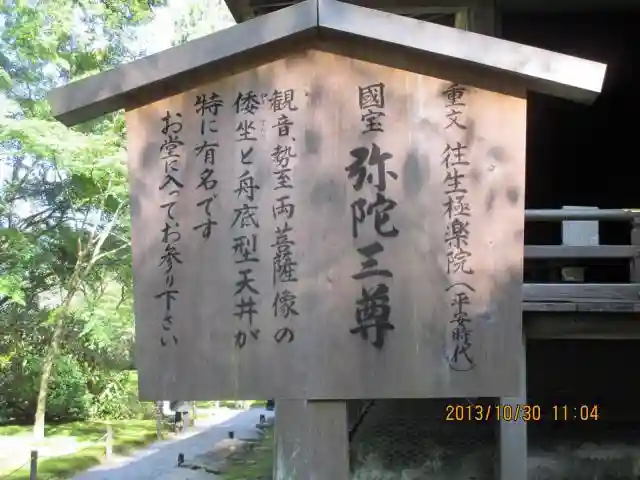 重文 往生極楽院(平安時代)
国宝 弥陀三尊
観音、勢至両菩薩像の
倭坐と舟底型天井が
特に有名です
お堂に入ってお参り下さい
2013/10/30 11:04